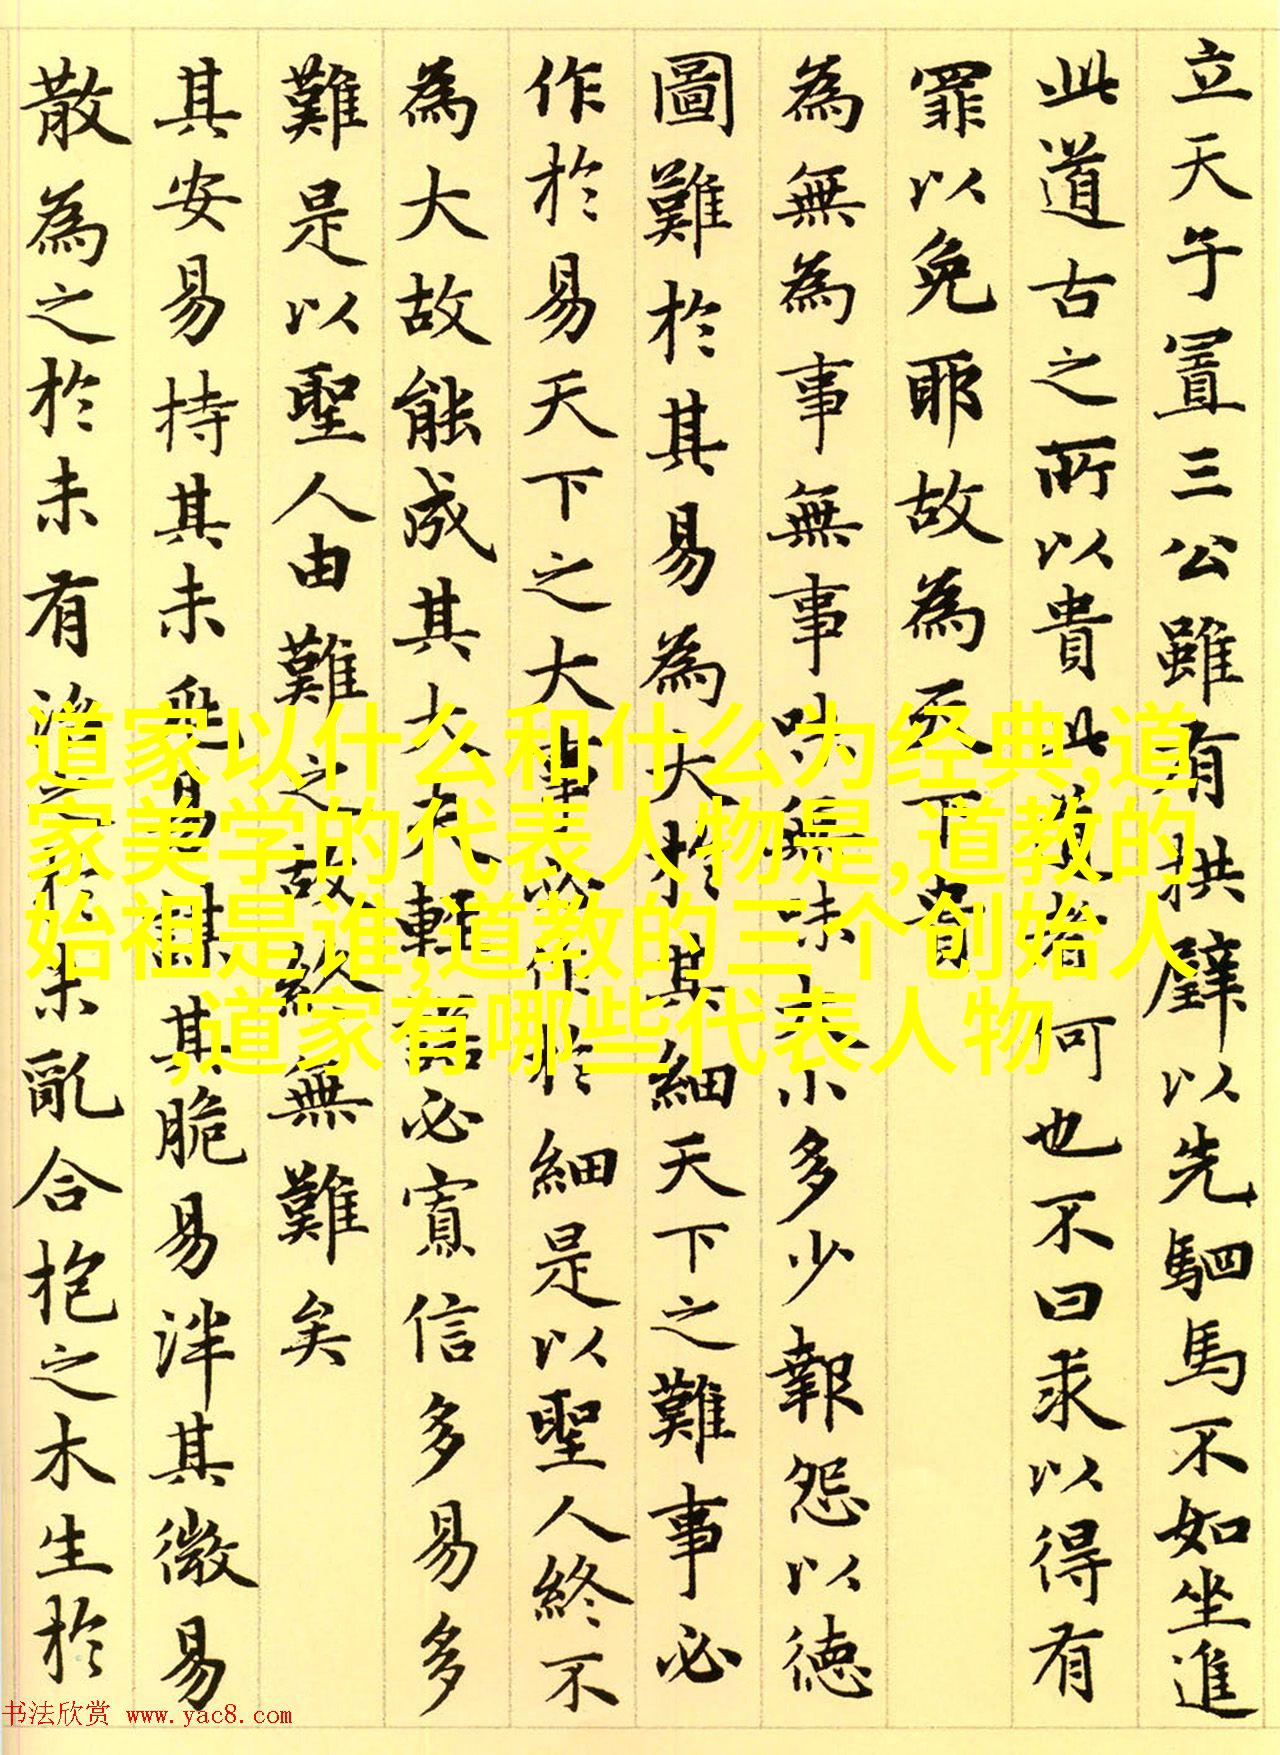 立天子置三公雖有拱璧以先駟馬不如坐進
此道古之所以貴此道者何也不曰求以得有
罪以免耶故為天下貴
為無為事無事味無味大小多少報怨以德
圖難於其易為大於其細天下之難事必
作於易天下之大事必作於細是以聖人終不
為大故能成其大夫輕諾必寡信多易多
難是以聖人由難之故終無難矣
其安易持其未兆易謀其脆易泮其微易
散為之於未有治之於未亂合抱之木生於
道家以什么和什么为经典,道
家美学的代表人物是,道教的
始祖是谁,道教的三个创始人
,道家有哪些代表人物
书法欣赏 www.yac8.com